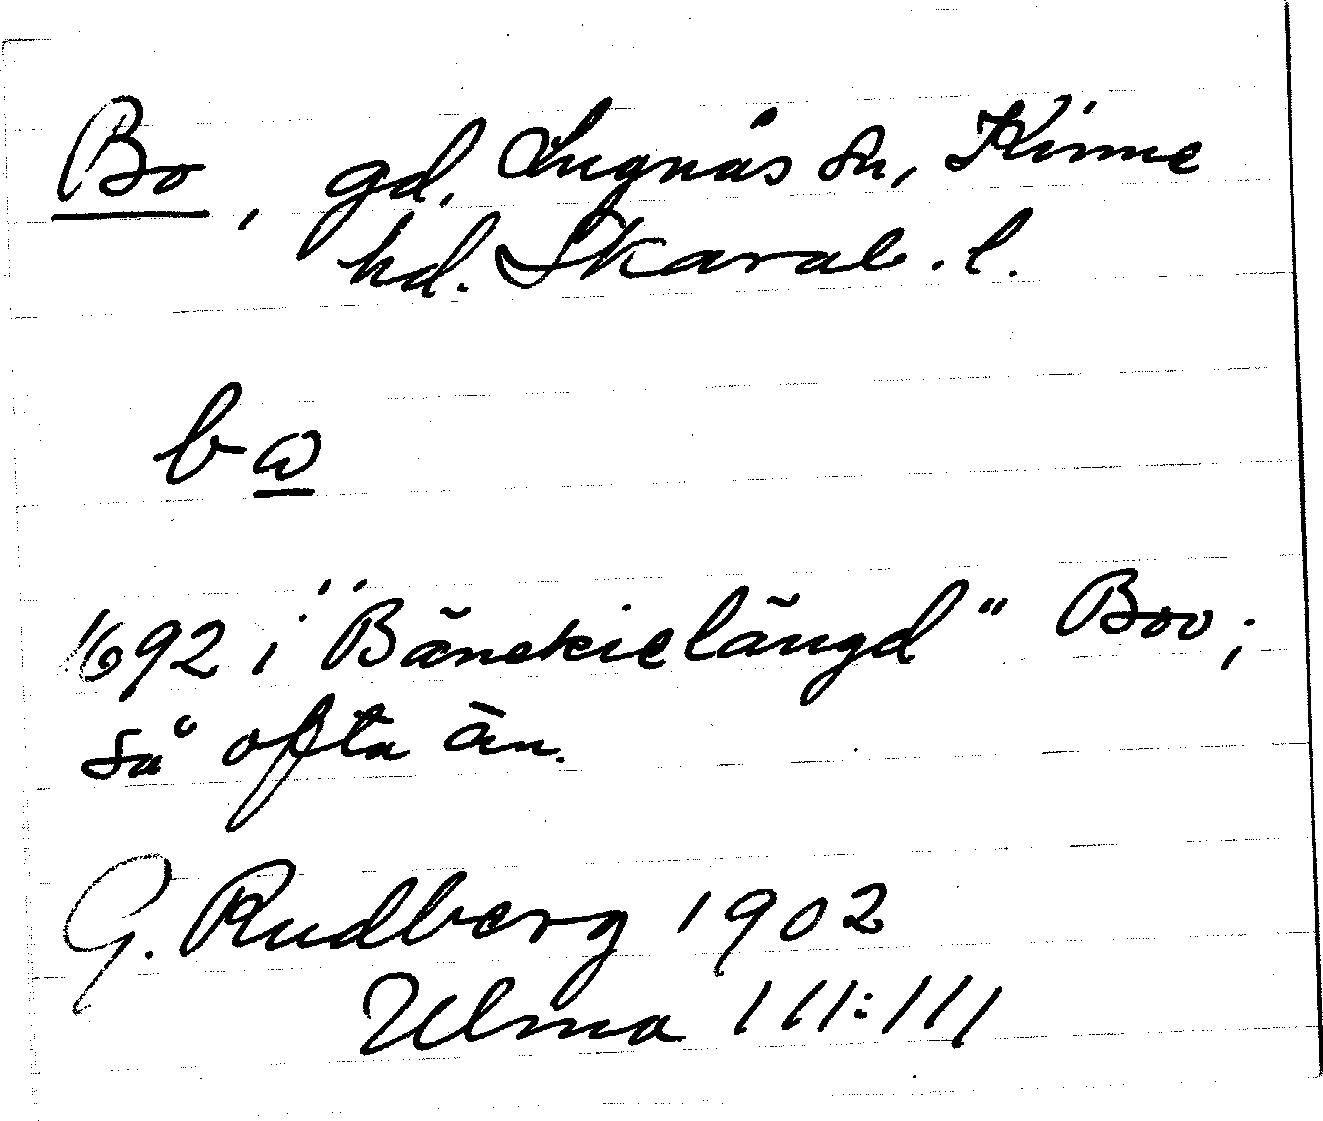 Bo, gd, Lugnås sn, Kinne
hd. Skarab. l.
bω
1692 i "Bänckielängd" Boo;
så ofta än.
G. Rudberg 1902
Ulma 111:111